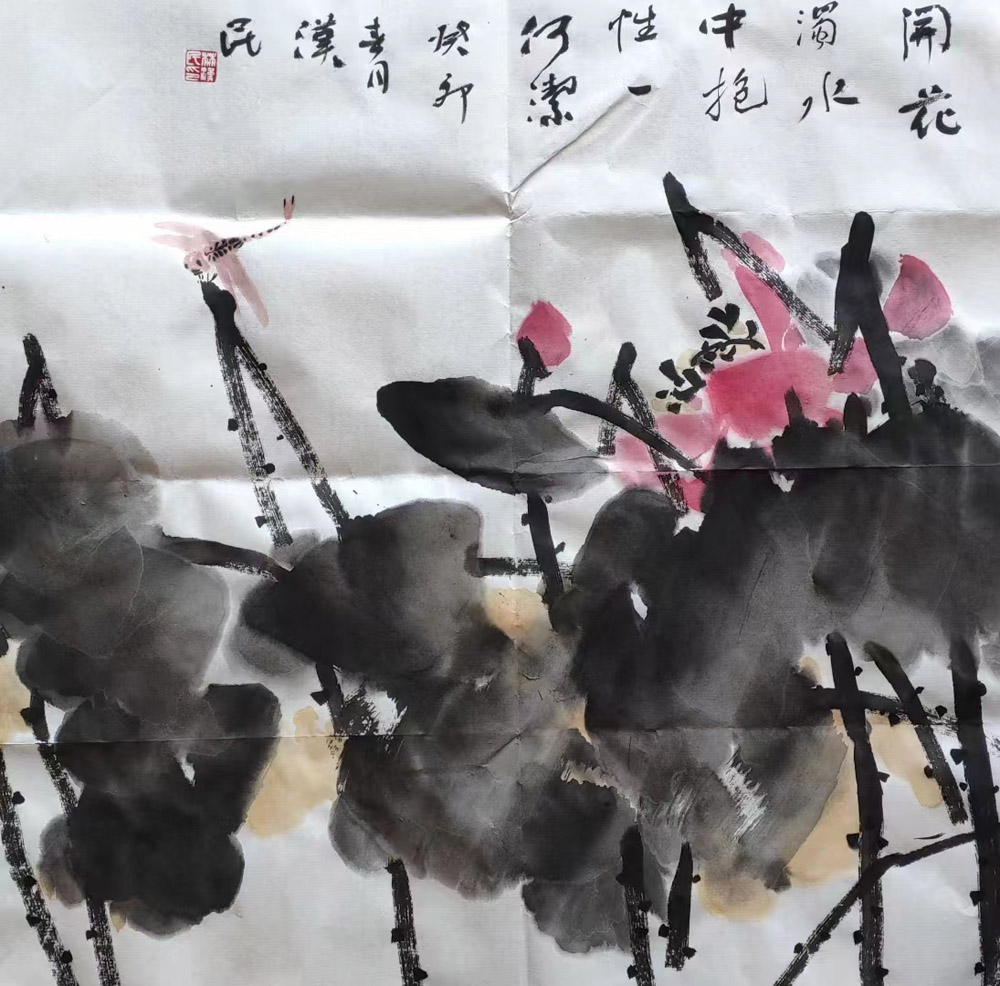 開花
濁水
中抱
性一
何潔
癸卯
春月
漢
民